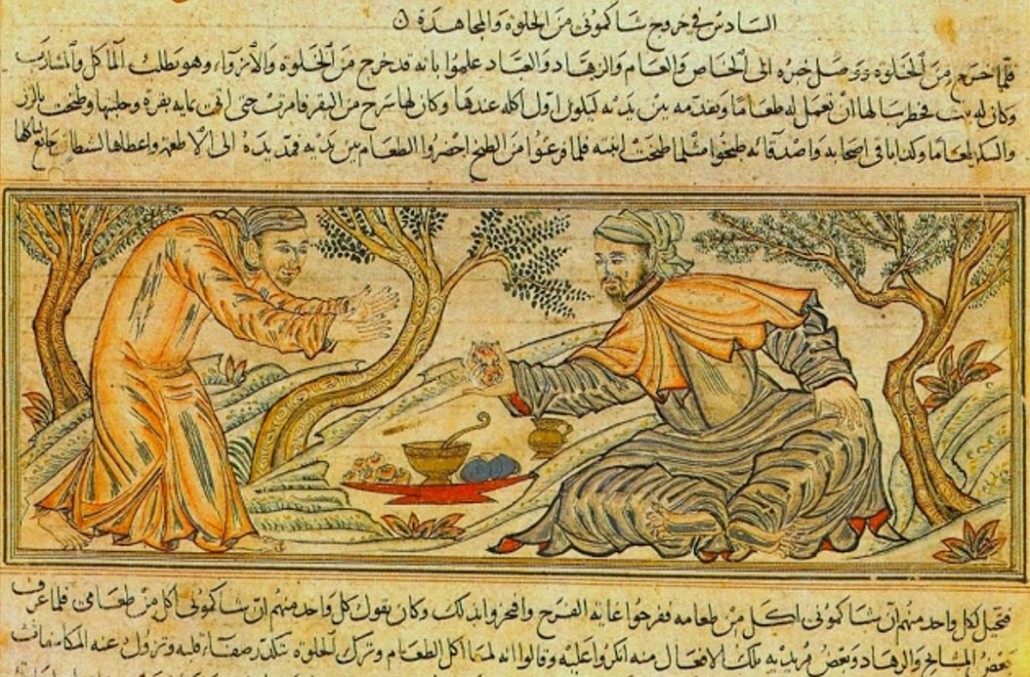 السادس في خروج شاكموني من الخلوة والمجاهدة
فلما خرج من الخلوة ووصل خبره الى الخاص والعام والزهاد والعباد علموا بانه قد خرج من الخلوة والانزواء وهو يطلب المآكل والمشارب
وكان له بنت فخطر ببالها ان تعمل له طعاما وتقدمه بين يديه ليكون اول اكله عندها وكان لها سرح من البقر فامرت حتى اتى بمايه بقرة وحلبتها وطبخت بالرز
والسكر طعاما وكذا باقي اصحابه واصدقائه طبخوا مثلما طبخت ابنته فلما فرغوا من الطبخ احضروا الطعام بين يديه فمد يده الى الاطعمة واعطاها لشيطان جائع
فتخيل لكل واحد منهم ان شاكموني اكل من طعامه ففرحوا غاية الفرح وافتخروا بذلك وكان يقول كل واحد منهم ان شاكموني اكل من طعامي فلما عرف
بعض المشايخ والزهاد وبعض مريديه تلك الافعال منه انكروا عليه وقالوا انه لما اكل الطعام وترك الخلوة تكدر صفاء قلبه وتزول عنه المكاشفات